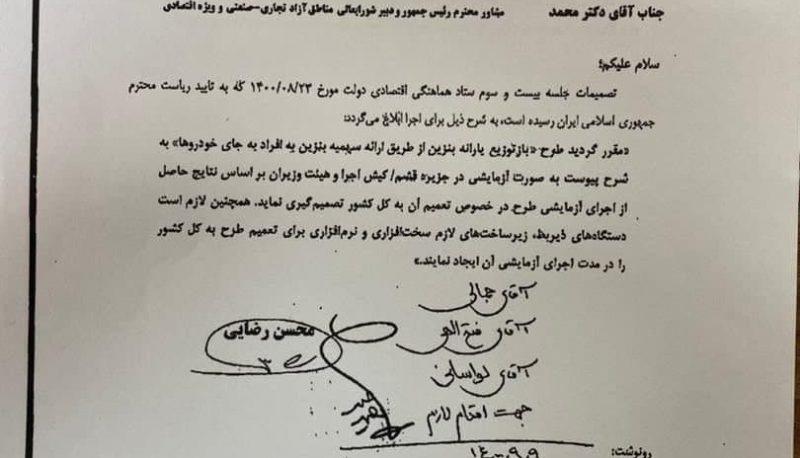 جناب آقای دکتر محمد
مشاور محترم رئیس جمهور و دبیر شورایعالی مناطق آزاد تجاری-صنعتی و ویژه اقتصادی
سلام علیکم؛
تصمیمات جلسه بیست و سوم ستاد هماهنگی اقتصادی دولت مورخ ۱۴۰۰/۰۸/۲۳ که به تایید ریاست محترم
جمهوری اسلامی ایران رسیده است، به شرح ذیل برای اجرا ابلاغ می‌گردد:
«مقرر گردید طرح «بازتوزیع یارانه بنزین از طریق ارائه سهمیه بنزین به افراد به جای خودروها» به
شرح پیوست به صورت آزمایشی در جزیره قشم/کیش اجرا و هیئت وزیران بر اساس نتایج حاصل
از اجرای آزمایشی طرح، در خصوص تعمیم آن به کل کشور تصمیم‌گیری نماید. همچنین لازم است
دستگاه‌های ذیربط، زیرساخت‌های لازم سخت‌افزاری و نرم‌افزاری برای تعمیم طرح به کل کشور
را در مدت اجرای آزمایشی آن ایجاد نمایند.»
آقای جمالی
آقای فتح الهی
محسن رضایی
آقای لواسانی
جهت اقدام لازم
رونوشت: